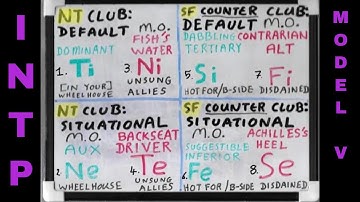 INTP
NT CLUB:
DEFAULT
M.O.
DOMINANT
FISH'S
WATER
1. Ti
3. Ni
[IN YOUR]
WHEELHOUSE
UNSUNG
ALLIES
SF COUNTER CLUB:
DEFAULT M.O.
DABBLING
TERTIARY
CONTRARIAN
ALT
5. Si
7. Fi
HOT FOR/B-SIDE
DISDAINED
NT CLUB:
SITUATIONAL
M.O.
AUX
BACKSEAT
DRIVER
2. Ne
4. Te
WHEELHOUSE
UNSUNG
ALLIES
SF COUNTER CLUB:
SITUATIONAL
M.O.
SUGGESTIBLE
INFERIOR
ACHILLES'S
HEEL
6. Fe
8. Se
HOT FOR/B-SIDE
DISDAINED
MODEL V